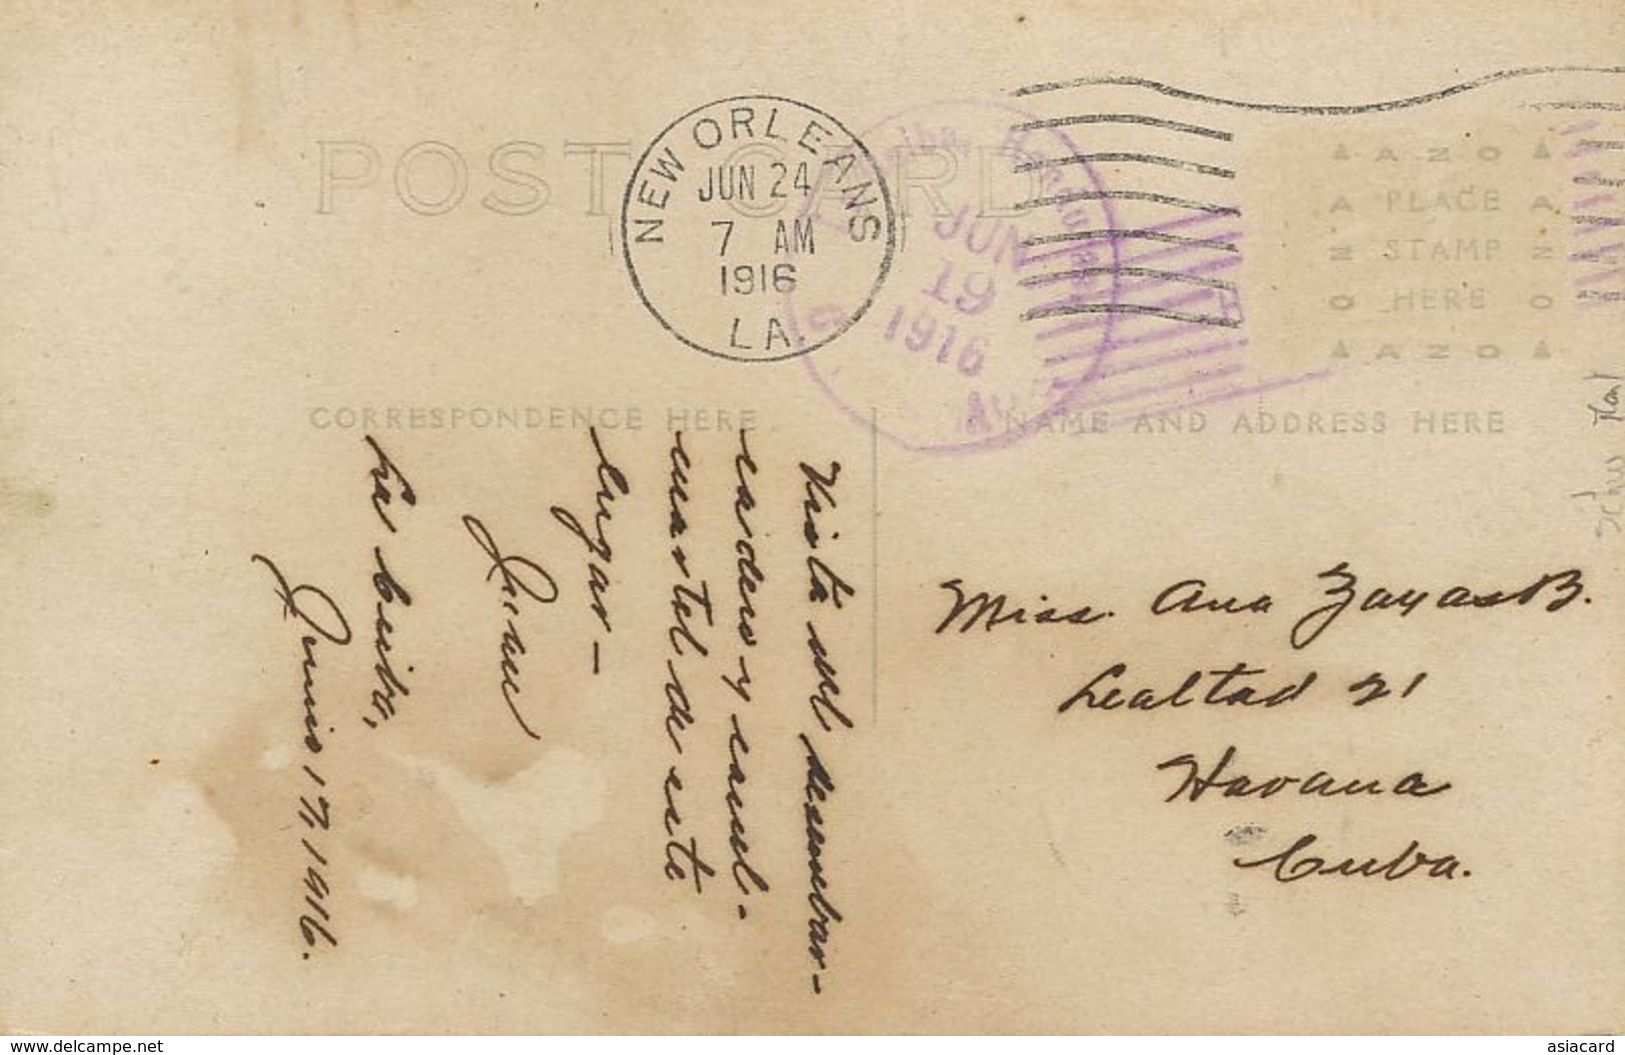 POST CARD
NEW ORLEANS
JUN 24
7 AM
1916
LA.
JUN
19
1916
AZO
PLACE
STAMP
HERE
AZO
CORRESPONDENCE HERE
NAME AND ADDRESS HERE
Vista del desembar-
cadero y cuul-
cuartel de este
lugar—
La Ceiba,
Junio 17, 1916.
Miss. Ana Zayas B.
Lealtad 21
Havana
Cuba.
www.delcampe.net
asiacard